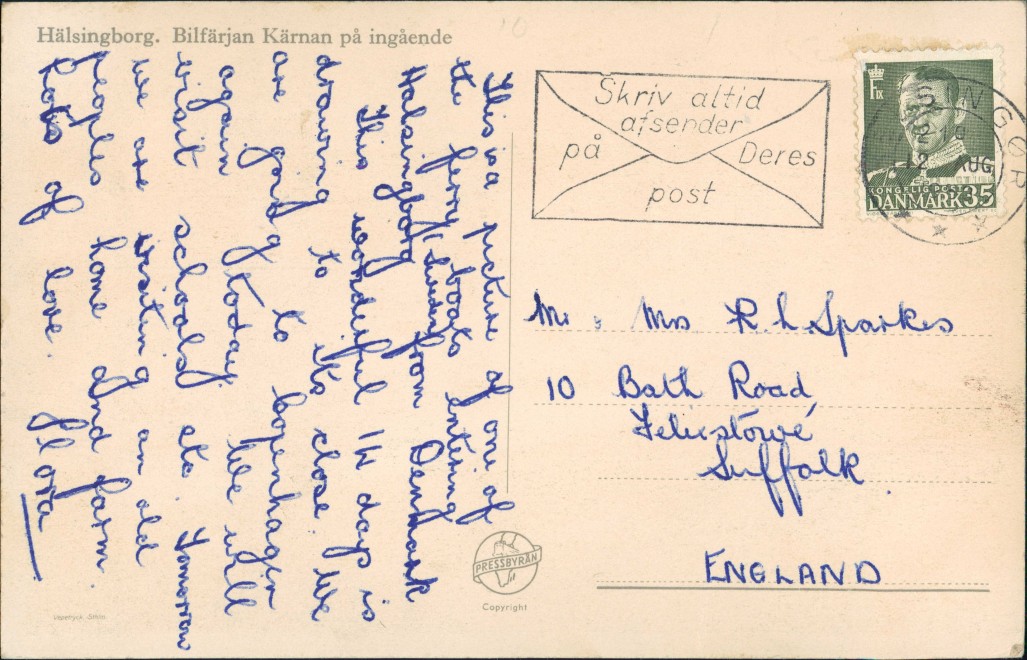 Hälsingborg. Bilfärjan Kärnan på ingående
This is a picture of one of
the ferry boats entering
Halsingborg (Sweden) from Denmark
This wonderful 14 days is
drawing to its close. We
are going to Copenhagin
again today. We will
visit schools etc. Tomorrow
we are visiting an old
peoples home and farm.
Lots of love.
Flora
Skriv altid
afsender
på Deres
post
FIX
KONGELIG POST
DANMARK 35
AUG
Mr & Mrs R. L. Sparkes
10 Bath Road,
Felixstowe
Suffolk.
ENGLAND
PRESSBYRÅN
Copyright